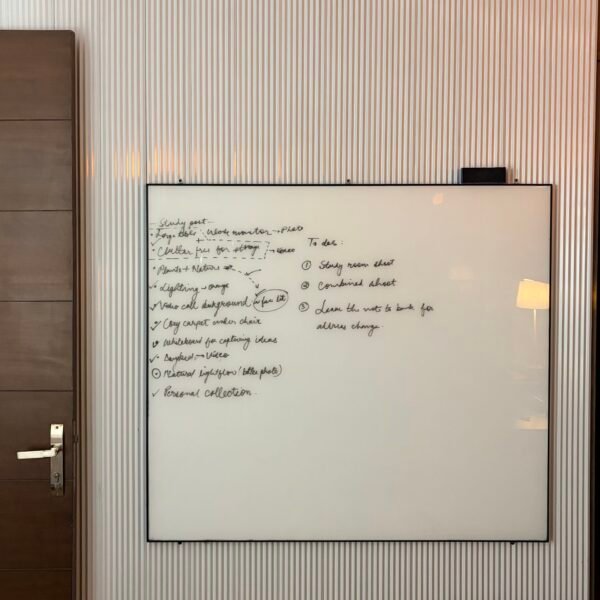 Study post
Large : Wide monitor → Photo
Clutter free for storage → video
Plants + Nature
Lighting → orange
Video call background
Cosy carpet under chair
Whiteboard for capturing ideas
→ Video
Natural light flow (better photo)
Personal collection.
To do :
① Study room shoot
② Combined shoot
③ to bank for
address change.